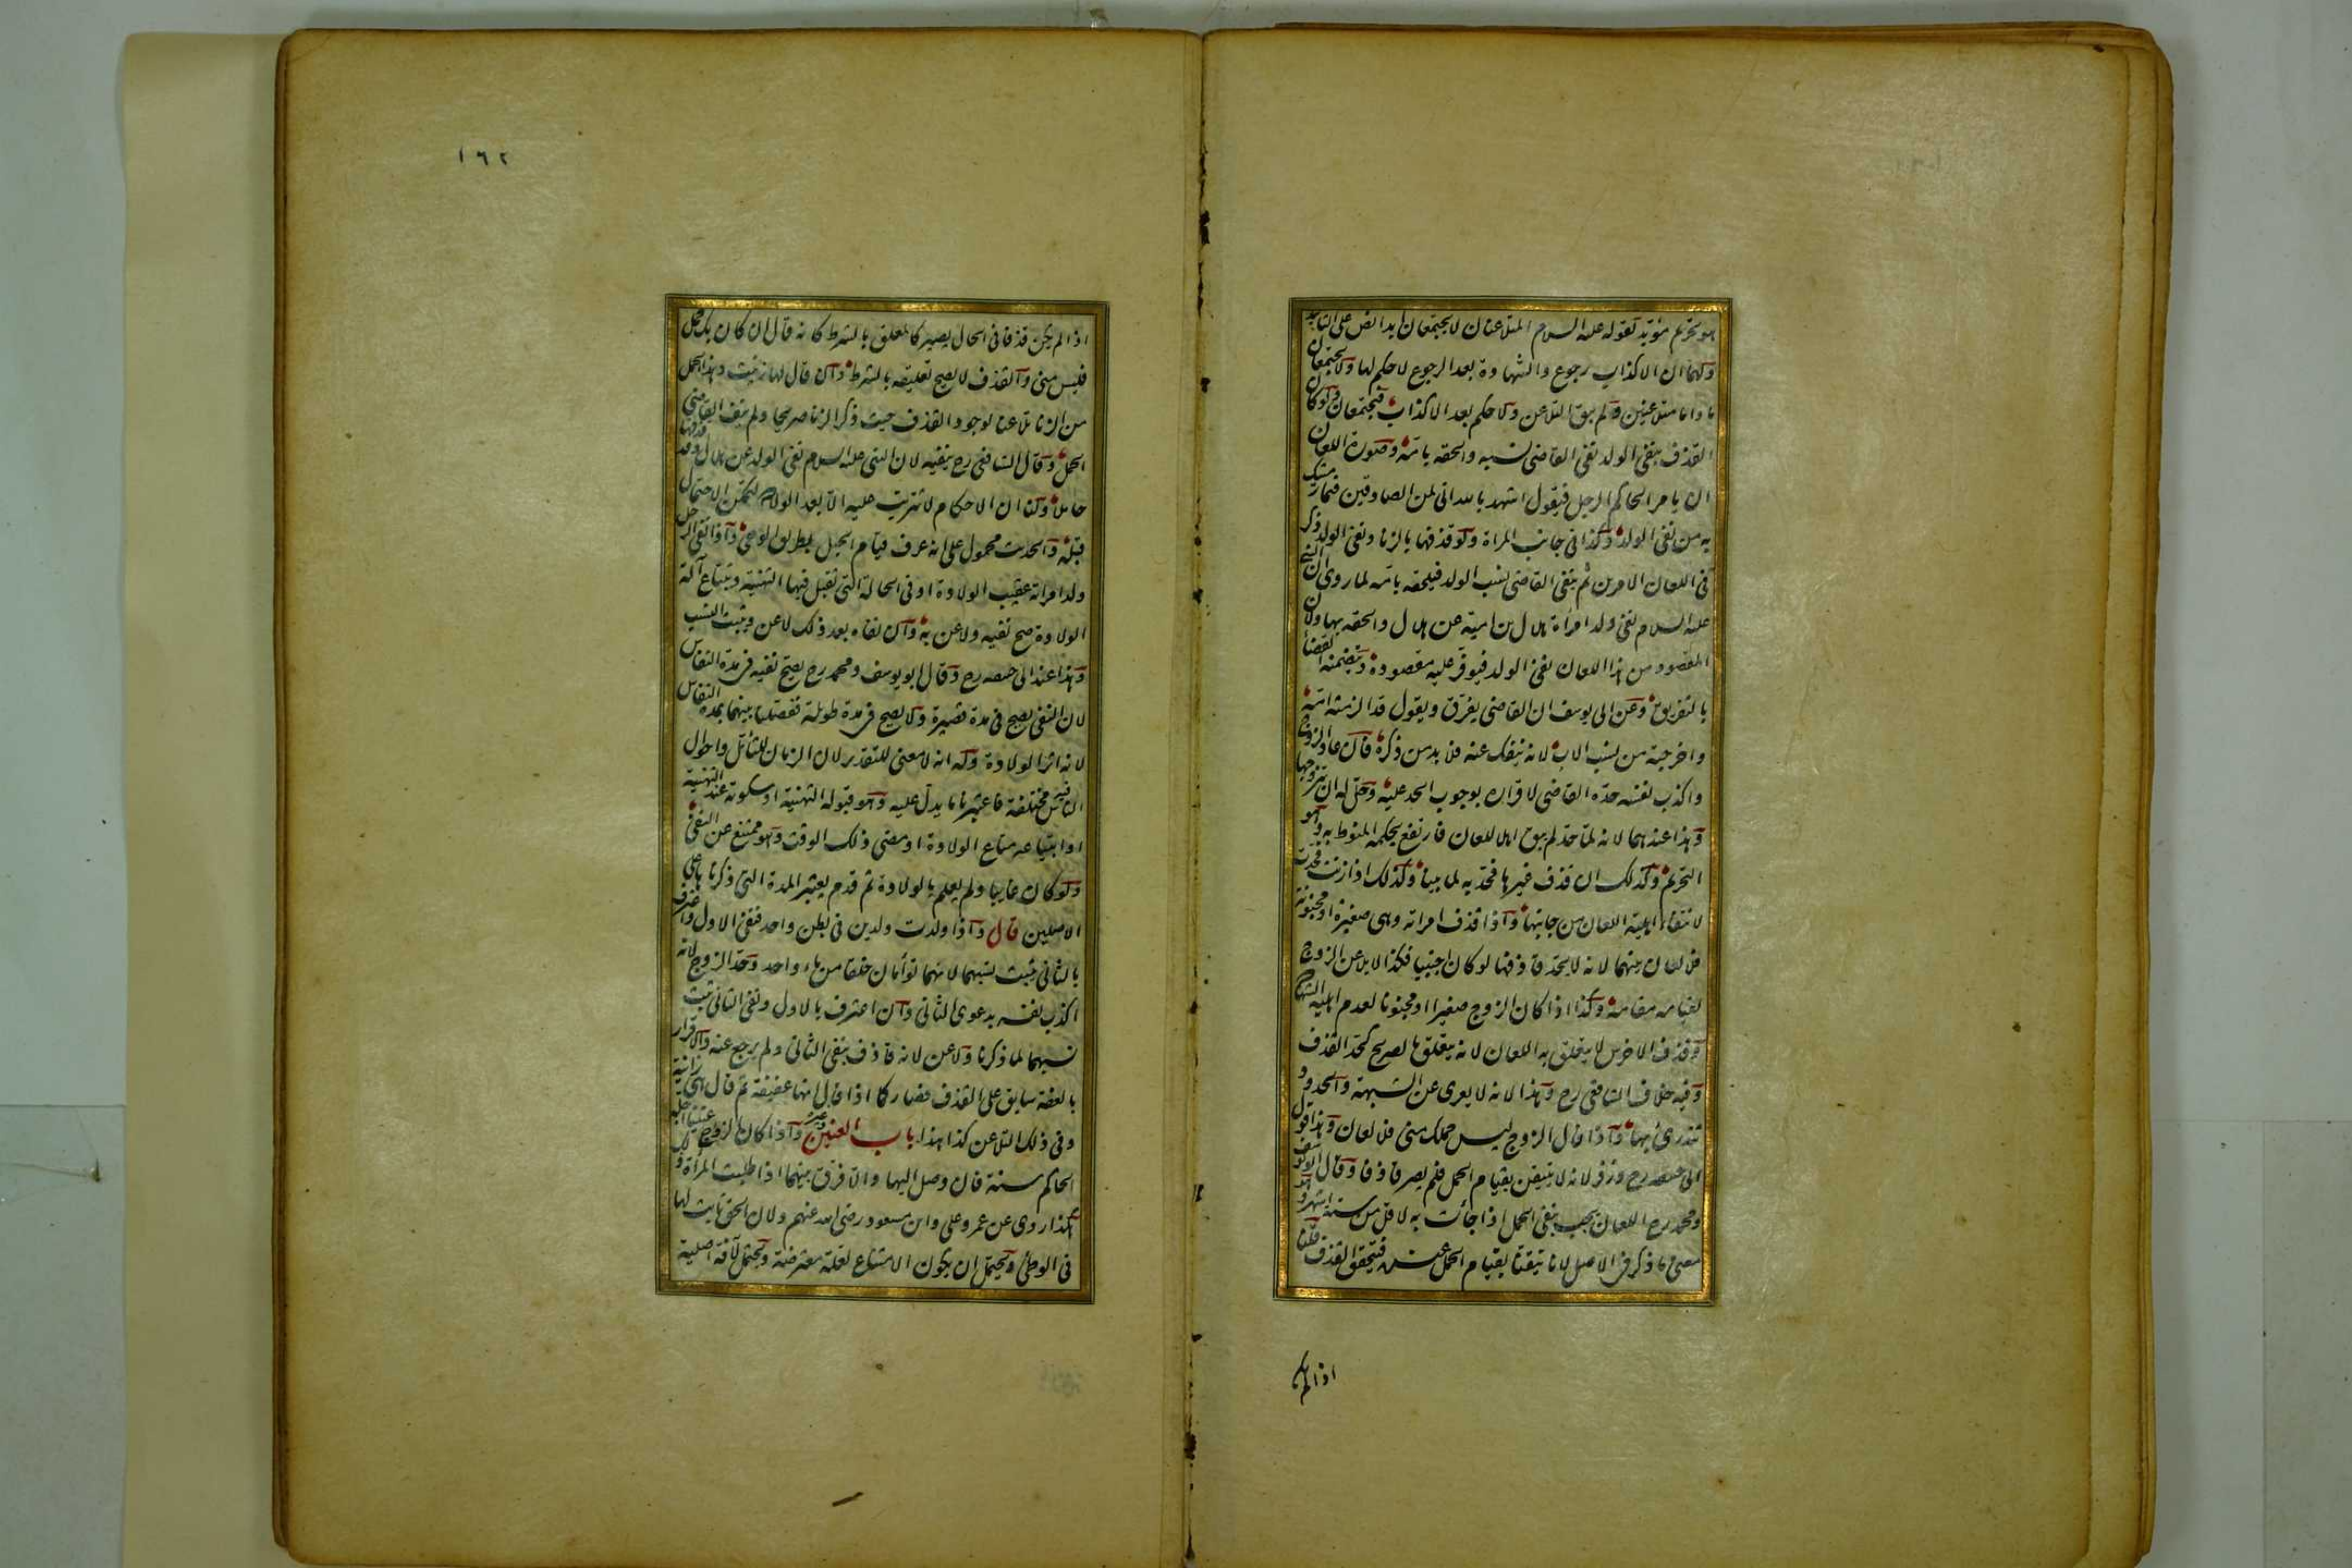 هو تحريم مؤبد لقوله عليه السلام المتلاعنان لا يجتمعان ابدا نص على التأبيد
ولهما ان الاكذاب رجوع والشهادة بعد الرجوع لا حكم لها ولا يجتمعان
ما داما متلاعنين ولم يبق التلاعن ولا حكم بعد الاكذاب فيجتمعان ولو كان
القذف بنفى الولد نفى القاضى نسبه والحقه بامه وصورة اللعان
ان يامر الحاكم الرجل فيقول اشهد بالله انى لمن الصادقين فيما رميتك
به من نفى الولد وكذا فى جانب المراة ولو قذفها بالزنا ونفى الولد ذكر
فى اللعان الامرين ثم ينفى القاضى نسب الولد فيلحقه بامه لما روى ان النبى
عليه السلام نفى ولد امرأة هلال بن امية عن هلال والحقه بها ولان
المقصود من هذا اللعان نفى الولد فيوفر عليه مقصوده ويتضمنه القضاء
بالتفريق وعن ابى يوسف ان القاضى يفرق ويقول قد الزمته امه
واخرجته من نسب الاب لانه ينفك عنه فلا بد من ذكره فان عاد الزوج
واكذب نفسه حده القاضى لاقراره بوجوب الحد عليه وحل له ان يتزوجها
وهذا عندهما لانه لما حد لم يبق اهل اللعان فارتفع بحكمه المنوط به وهو
التحريم وكذلك ان قذف غيرها فحد به لما بينا وكذلك اذا زنت فحدت
لانتفاء اهلية اللعان من جانبها واذا قذف امراته وهى صغيرة او مجنونة
فلا لعان بينهما لانه لا يحد قاذفها لو كان اجنبيا فكذا لا يلاعن الزوج
لقيامه مقامه وكذا اذا كان الزوج صغيرا او مجنونا لعدم اهلية الشهادة
وقذف الاخرس لا يتعلق به اللعان لانه يتعلق بالصريح كحد القذف
وفيه خلاف الشافعى رح وهذا لانه لا يعرى عن الشبهة والحدود
تندرئ بها واذا قال الزوج ليس حملك منى فلا لعان وهذا قول
ابى حنيفه رح وزفر لانه لا يتيقن بقيام الحمل فلم يصر قاذفا وقال ابو يوسف
ومحمد رح اللعان يجب بنفى الحمل اذا جائت به لاقل من ستة اشهر وهو
معنى ما ذكر فى الاصل لانا تيقنا بقيام الحمل عنده فيتحقق القذف قلنا
اذا لم يكن
١٦٢
اذا لم يكن قذفا فى الحال يصير كالمعلق بالشرط كانه قال ان كان بك حمل
فليس منى والقذف لا يصح تعليقه بالشرط وان قال لها زنيت وهذا الحمل
من الزنا تلاعنا لوجود القذف حيث ذكر الزنا صريحا ولم ينف القاضى
الحمل وقال الشافعى رح ينفيه لان النبى عليه السلام نفى الولد عن هلال وقد قذفها
حاملا ولنا ان الاحكام لا تترتب عليه الا بعد الولادة لتمكن الاحتمال
قبله والحديث محمول على انه عرف قيام الحبل بطريق الوحى واذا نفى الرجل
ولد امراته عقيب الولادة او فى الحالة التى تقبل فيها التهنية وتبتاع آلة
الولادة صح نفيه ولاعن به وان نفاه بعد ذلك لاعن ويثبت النسب
وهذا عند ابى حنيفه رح وقال ابو يوسف ومحمد رح يصح نفيه فى مدة النفاس
لان النفى يصح فى مدة قصيرة ولا يصح فى مدة طويلة ففصلنا بينهما بمدة النفاس
لانه اثر الولادة وله انه لا معنى للتقدير لان الزمان للتأمل واحوال
الناس فيه مختلفة فاعتبرنا ما يدل عليه وهو قبوله التهنية او سكوته عند التهنية
او ابتياعه متاع الولادة او مضى ذلك الوقت وهو ممتنع عن النفى
ولو كان غايبا ولم يعلم بالولادة ثم قدم يعتبر المدة التى ذكرناها على
الاصلين قال واذا ولدت ولدين فى بطن واحد فنفى الاول واعترف
بالثانى يثبت نسبهما لانهما توأمان خلقا من ماء واحد وحد الزوج لانه
اكذب نفسه بدعوى الثانى وان اعترف بالاول ونفى الثانى ثبت
نسبهما لما ذكرنا ولاعن لانه قاذف بنفى الثانى ولم يرجع عنه والاقرار
بالعفة سابق على القذف فصار كما اذا قال انها عفيفة ثم قال هى زانية
وفى ذلك التلاعن كذا هذا باب العنين وغيره واذا كان الزوج عنينا اجله
الحاكم سنة فان وصل اليها والا فرق بينهما اذا طلبت المرأة ذلك
هكذا روى عن عمر وعلى وابن مسعود رضى الله عنهم ولان الحق ثابت لها
فى الوطئ ويحتمل ان يكون الامتناع لعلة معترضة ويحتمل لآفة اصلية